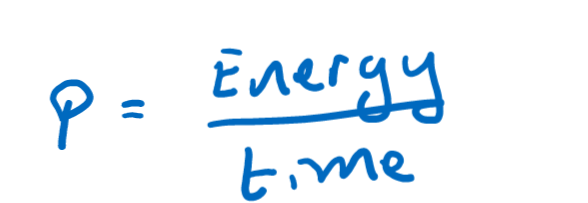 P = Energy
time